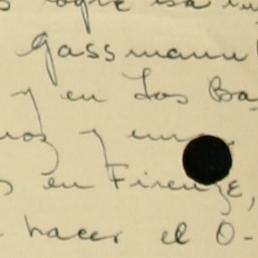 Gassmann
y en Los Ba
nos y en
s en Firenze,
hacer el O-